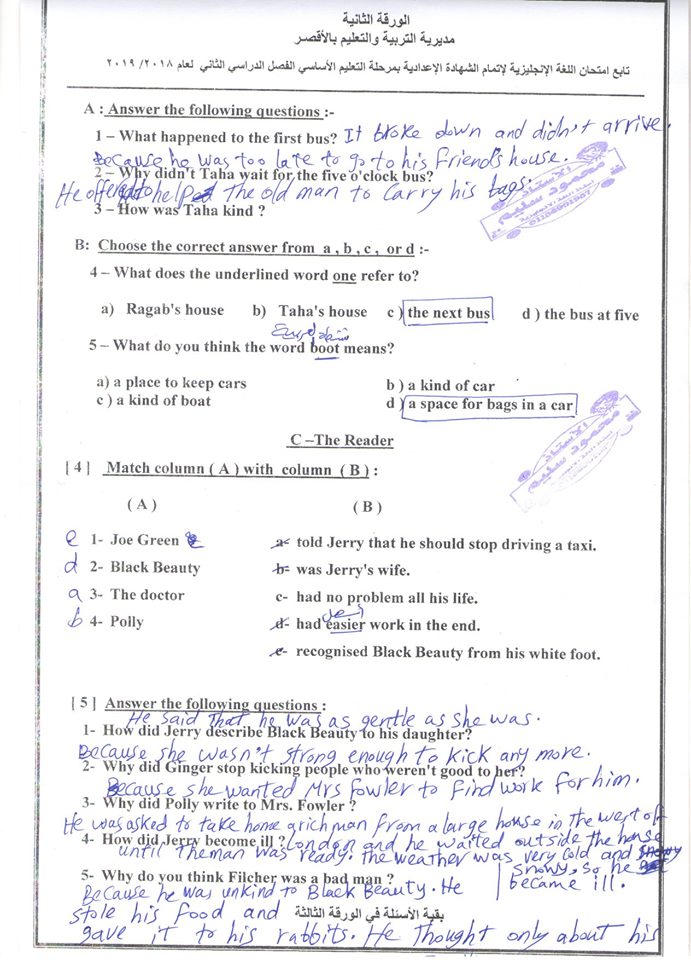 الورقة الثانية
مديرية التربية والتعليم بالأقصر
تابع امتحان اللغة الإنجليزية لإتمام الشهادة الإعدادية بمرحلة التعليم الأساسي الفصل الدراسي الثاني لعام ٢٠١٨ /٢٠١٩
A : Answer the following questions :-
1 – What happened to the first bus? It broke down and didn't arrive.
Because he was too late to go to his friend's house.
2 – Why didn't Taha wait for the five o'clock bus?
He offered to help the old man to carry his bags.
3 – How was Taha kind ?
الأستاذ
محمود سليم
B: Choose the correct answer from a , b , c , or d :-
4 – What does the underlined word one refer to?
a) Ragab's house b) Taha's house c ) the next bus d ) the bus at five
5 – What do you think the word boot means?
a) a place to keep cars b ) a kind of car
c ) a kind of boat d ) a space for bags in a car
الأستاذ
محمود سليم
C –The Reader
[ 4 ] Match column ( A ) with column ( B ) :
( A ) ( B )
e 1- Joe Green a- told Jerry that he should stop driving a taxi.
d 2- Black Beauty b- was Jerry's wife.
a 3- The doctor c- had no problem all his life.
أسهل
b 4- Polly d- had easier work in the end.
e- recognised Black Beauty from his white foot.
[ 5 ] Answer the following questions :
He said that he was as gentle as she was.
1- How did Jerry describe Black Beauty to his daughter?
Because she wasn't strong enough to kick any more.
2- Why did Ginger stop kicking people who weren't good to her?
Because she wanted Mrs Fowler to find work for him.
3- Why did Polly write to Mrs. Fowler ?
He was asked to take home a rich man from a large house in the west of
4- How did Jerry become ill ? London and he waited outside the house
until the man was ready. The weather was very cold and
snowy, so he
became ill.
5- Why do you think Filcher was a bad man ?
Because he was unkind to Black Beauty. He
stole his food and بقية الأسئلة في الورقة الثالثة
gave it to his rabbits. He thought only about his